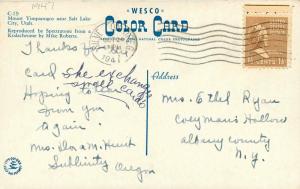 1947
C-19
Mount Timpanogos near Salt Lake
City, Utah.
Reproduced by Spectratone from a
Kodachrome by Mike Roberts.
"WESCO"
COLOR CARD
NATURAL COLOR PHOTOGRAPHS
194
1½¢
Thanks for
card She exchanges
small cards
Hoping to hear
from you
again.
Mrs. Nora M. Hunt
Sublimity Oregon
Address
Mrs. Ethel Ryan
Coeymans Hollow
Albany County
N.Y.